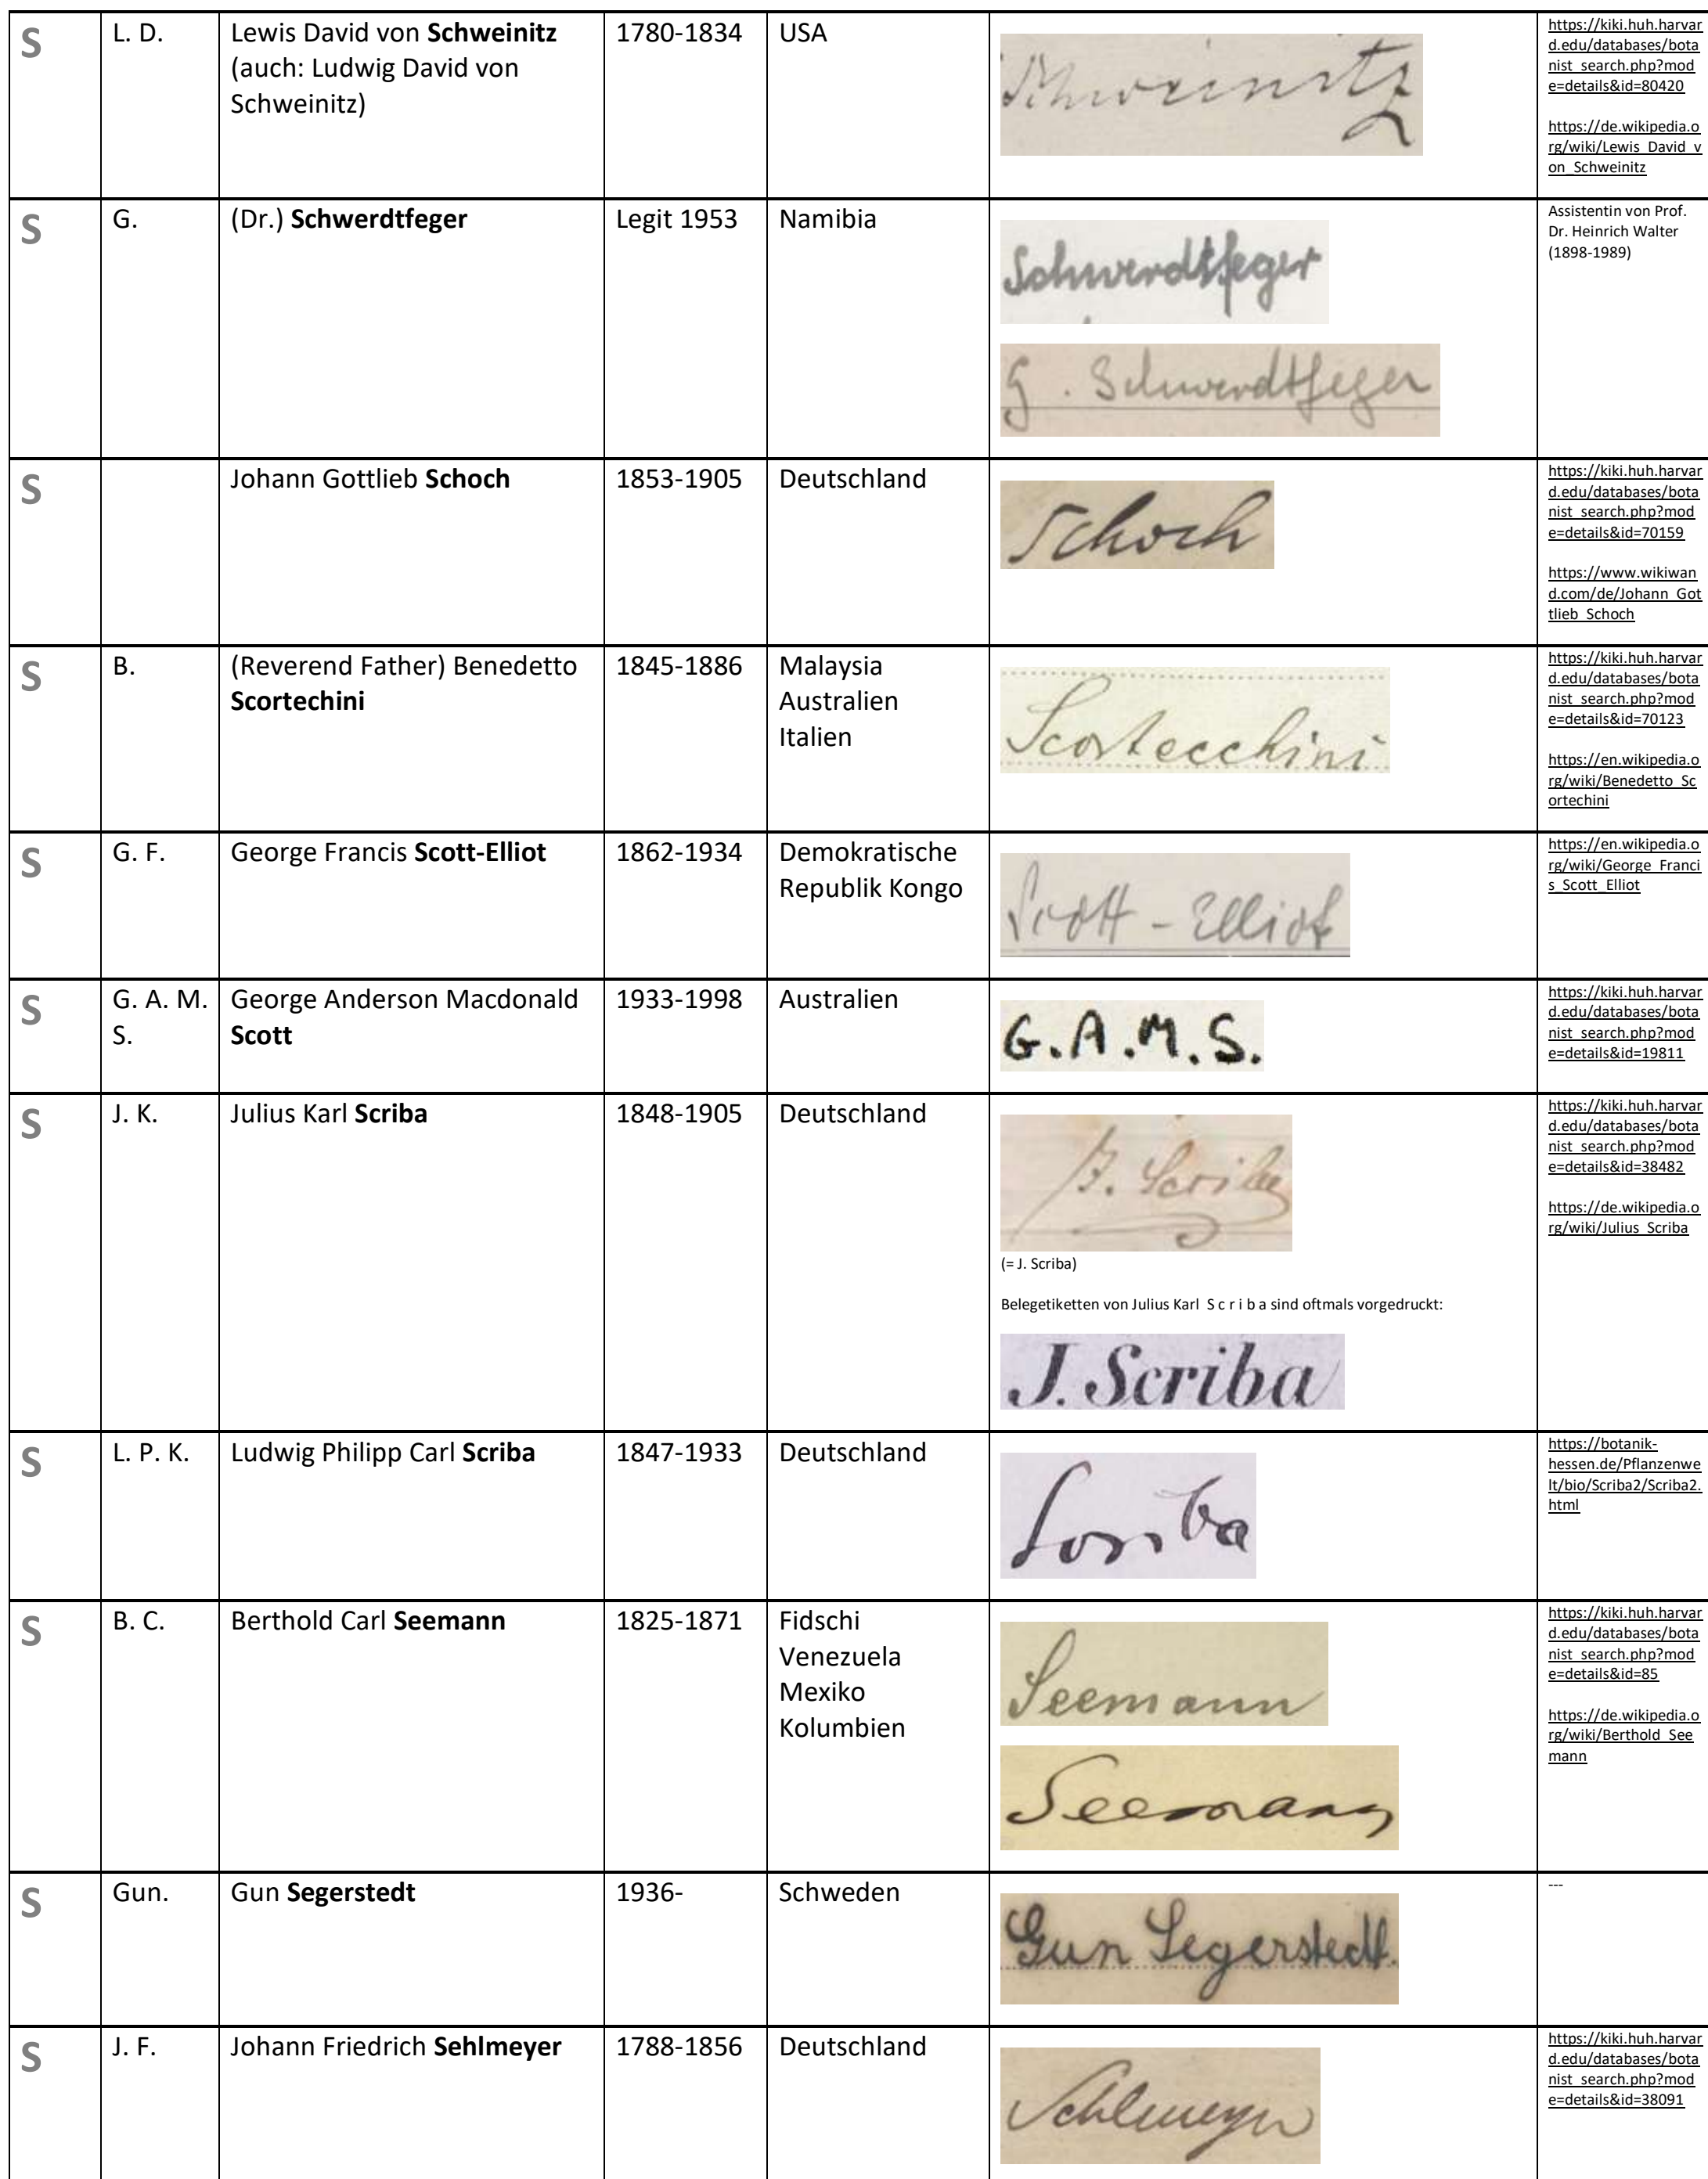 S
L. D.
Lewis David von Schweinitz
(auch: Ludwig David von
Schweinitz)
1780-1834
USA
Schweinitz
https://kiki.huh.harvar
d.edu/databases/bota
nist_search.php?mod
e=details&id=80420
https://de.wikipedia.o
rg/wiki/Lewis_David_v
on_Schweinitz
S
G.
(Dr.) Schwerdtfeger
Legit 1953
Namibia
Schwerdtfeger
G. Schwerdtfeger
Assistentin von Prof.
Dr. Heinrich Walter
(1898-1989)
S
Johann Gottlieb Schoch
1853-1905
Deutschland
Schoch
https://kiki.huh.harvar
d.edu/databases/bota
nist_search.php?mod
e=details&id=70159
https://www.wikiwan
d.com/de/Johann_Got
tlieb_Schoch
S
B.
(Reverend Father) Benedetto
Scortechini
1845-1886
Malaysia
Australien
Italien
Scortecchini
https://kiki.huh.harvar
d.edu/databases/bota
nist_search.php?mod
e=details&id=70123
https://en.wikipedia.o
rg/wiki/Benedetto_Sc
ortechini
S
G. F.
George Francis Scott-Elliot
1862-1934
Demokratische
Republik Kongo
Scott - Elliot
https://en.wikipedia.o
rg/wiki/George_Franci
s_Scott_Elliot
S
G. A. M.
S.
George Anderson Macdonald
Scott
1933-1998
Australien
G.A.M.S.
https://kiki.huh.harvar
d.edu/databases/bota
nist_search.php?mod
e=details&id=19811
S
J. K.
Julius Karl Scriba
1848-1905
Deutschland
J. Scriba
(= J. Scriba)
Belegetiketten von Julius Karl S c r i b a sind oftmals vorgedruckt:
J. Scriba
https://kiki.huh.harvar
d.edu/databases/bota
nist_search.php?mod
e=details&id=38482
https://de.wikipedia.o
rg/wiki/Julius_Scriba
S
L. P. K.
Ludwig Philipp Carl Scriba
1847-1933
Deutschland
Scriba
https://botanik-
hessen.de/Pflanzenwe
lt/bio/Scriba2/Scriba2.
html
S
B. C.
Berthold Carl Seemann
1825-1871
Fidschi
Venezuela
Mexiko
Kolumbien
Seemann
Seemann
https://kiki.huh.harvar
d.edu/databases/bota
nist_search.php?mod
e=details&id=85
https://de.wikipedia.o
rg/wiki/Berthold_See
mann
S
Gun.
Gun Segerstedt
1936-
Schweden
Gun Segerstedt.
---
S
J. F.
Johann Friedrich Sehlmeyer
1788-1856
Deutschland
Sehlmeyer
https://kiki.huh.harvar
d.edu/databases/bota
nist_search.php?mod
e=details&id=38091